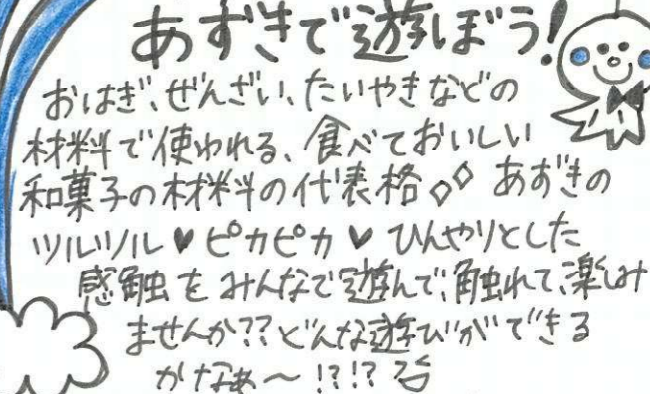 あずきで遊ぼう!
おはぎ、ぜんざい、たいやきなどの
材料で使われる、食べておいしい
和菓子の材料の代表格◇◇ あずきの
ツルツル♥ピカピカ♥ ひんやりとした
感触をみんなで遊んで、触れて、楽しみ
ませんか??どんな遊びができる
かなぁ～!?!?